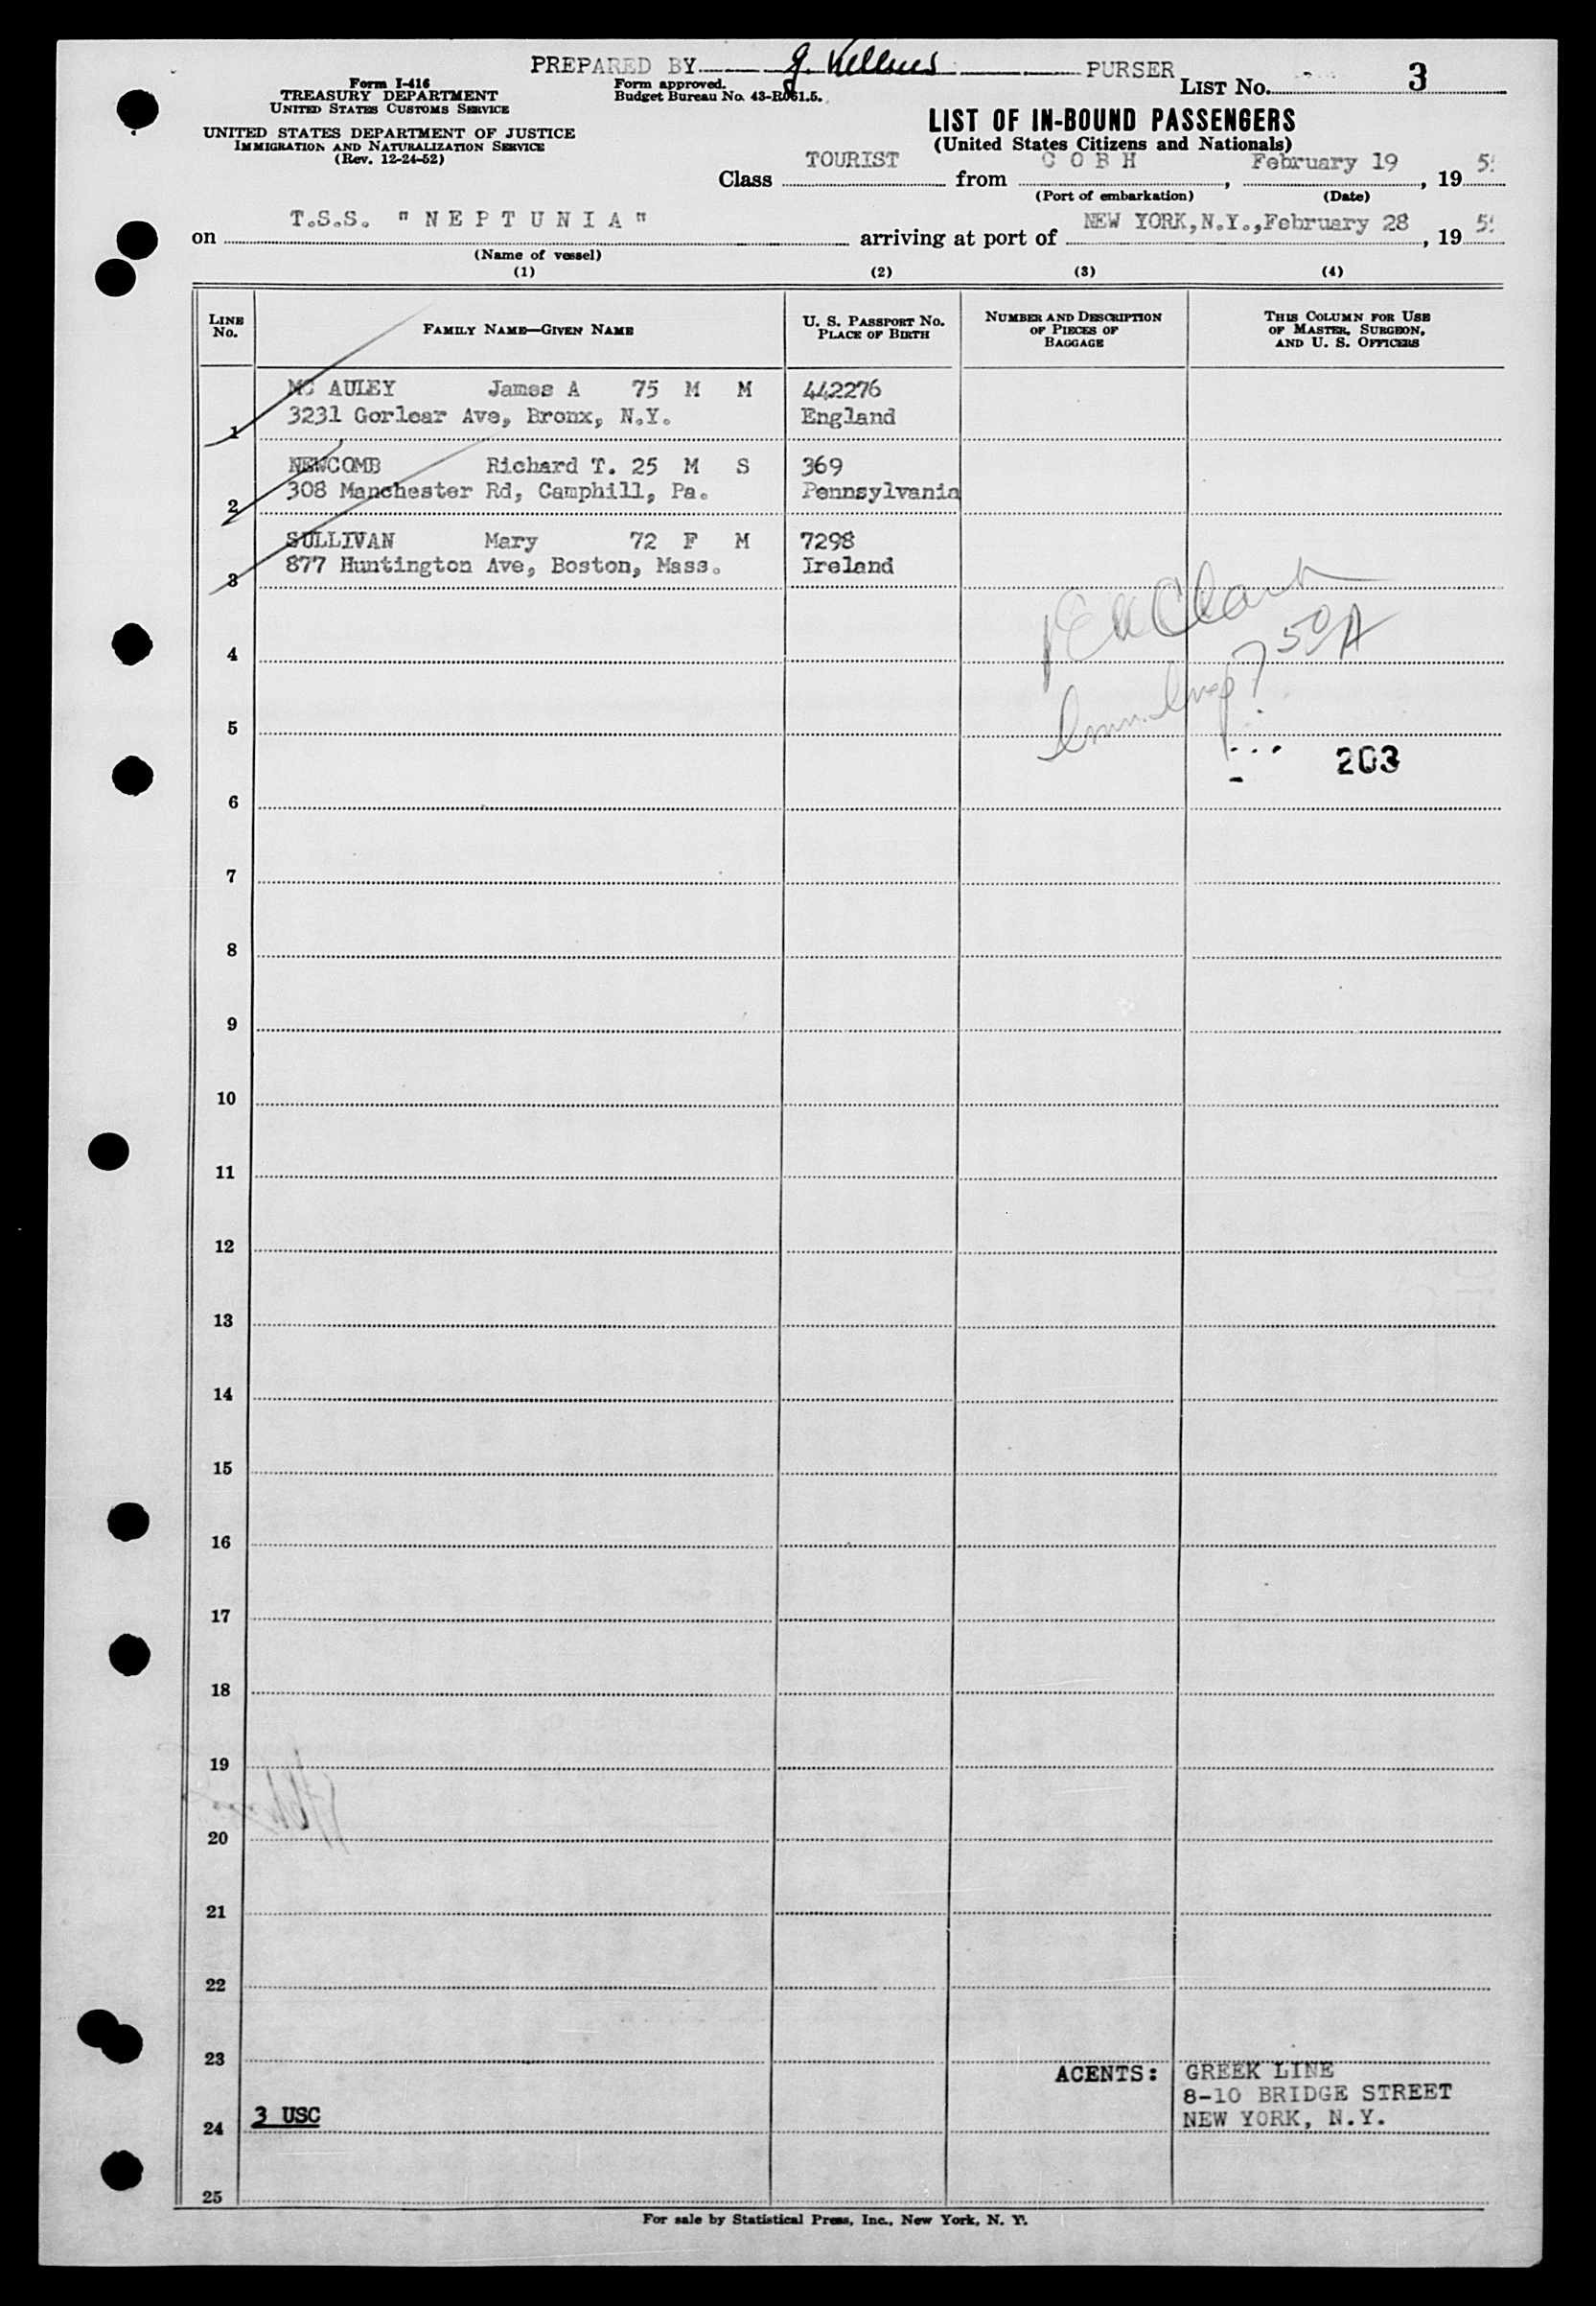 PREPARED BY PURSER
Form I-416
TREASURY DEPARTMENT
UNITED STATES CUSTOMS SERVICE
UNITED STATES DEPARTMENT OF JUSTICE
IMMIGRATION AND NATURALIZATION SERVICE
(Rev. 12-24-52)
Form approved.
Budget Bureau No. 43-R061.5.
LIST No. 3
LIST OF IN-BOUND PASSENGERS
(United States Citizens and Nationals)
Class TOURIST from C O B H, February 19, 19
(Port of embarkation) (Date)
on T.S.S. "N E P T U N I A" arriving at port of NEW YORK,N.Y.,February 28, 19
(Name of vessel)
(1) (2) (3) (4)
LINE No. FAMILY NAME—GIVEN NAME U. S. PASSPORT No. PLACE OF BIRTH NUMBER AND DESCRIPTION OF PIECES OF BAGGAGE THIS COLUMN FOR USE OF MASTER, SURGEON, AND U. S. OFFICERS
MC AULEY James A 75 M M 442276
1 3231 Gorlear Ave, Bronx, N.Y. England
NEWCOMB Richard T. 25 M S 369
2 308 Manchester Rd, Camphill, Pa. Pennsylvania
SULLIVAN Mary 72 F M 7298
3 877 Huntington Ave, Boston, Mass. Ireland
4
5
203
6
7
8
9
10
11
12
13
14
15
16
17
18
19
20
21
22
23
ACENTS: GREEK LINE
8-10 BRIDGE STREET
24 3 USC NEW YORK, N.Y.
25
For sale by Statistical Press, Inc., New York, N. Y.